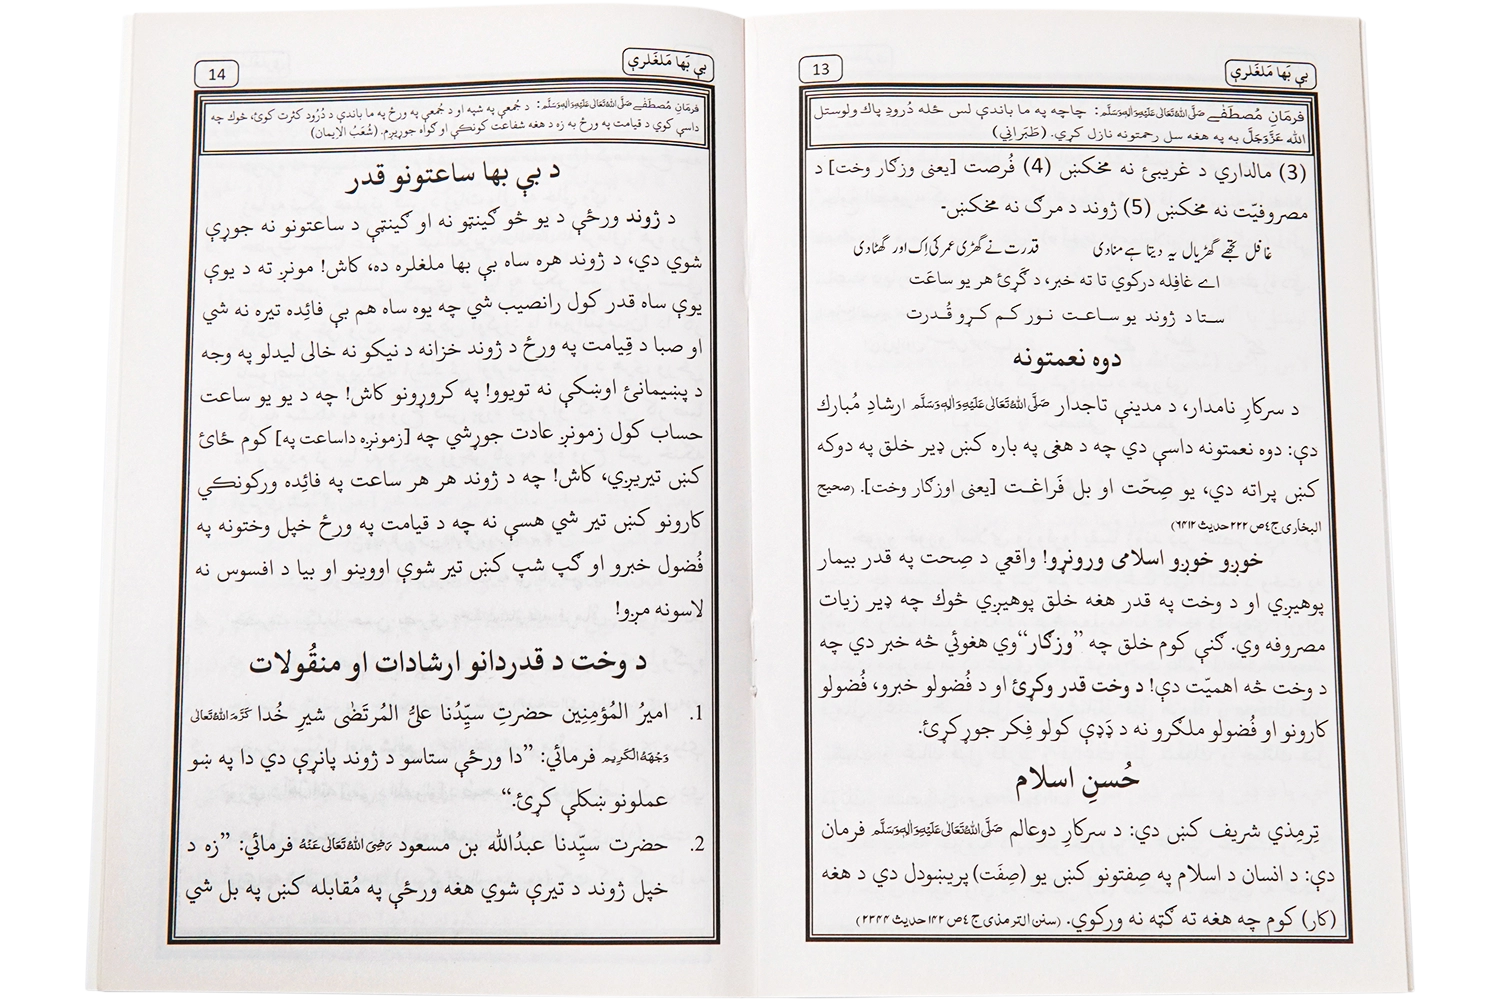 بې بَها مَلغَلرې
13
فرمَانِ مُصطَفٰے صَلَّى اللهُ تَعَالٰى عَلَيْهِ وَاٰلِهٖ وَسَلَّم: چاچه په ما باندې لس ځله دُرودِ پاك ولوستل
الله عَزَّوَجَلَّ به په هغه سل رحمتونه نازل كړي. (طَبَرانِي)
(3) مالداري د غريبئ نه مخکښ (4) فُرصت [يعنې وزګار وخت] د
مصروفيّت نه مخکښ (5) ژوند د مرګ نه مخکښ-
غافل تجھے گھڑیال یہ دیتا ہے منادی قدرت نے گھڑی عمر کی اِک اور گھٹا دی
اے غافِله درکوي تا ته خبر، د ګَړئ هر يو ساعَت
ستا د ژوند يو ساعت نور کم کړو قُدرت
دوه نعمتونه
د سرکارِ نامدار، د مدينې تاجدار صَلَّى اللهُ تَعَالٰى عَلَيْهِ وَاٰلِهٖ وَسَلَّم ارشادِ مُبارك
دې: دوه نعمتونه داسې دي چه د هغې په باره کښ ډير خلق په دوکه
کښ پراته دي، يو صِحّت او بل فَراغت [يعنې اوزګار وخت]. (صحيح
البخاری ج٤ ص ٢٢٢ حديث ٦٤١٢)
خوږو خوږو اسلامی ورونړو! واقعي د صِحت په قدر بيمار
پوهيږي او د وخت په قدر هغه خلق پوهيږي څوك چه ډير زيات
مصروفه وي. ګنې کوم خلق چه ”وزګار“ وي هغوئې څه خبر دي چه
د وخت څه اهميّت دې! د وخت قدر وکړئ او د فُضولو خبرو، فُضولو
کارونو او فُضولو ملګرو نه د ډَډې کولو فِکر جوړکړئ.
حُسنِ اسلام
تِرمِذي شريف کښ دي: د سرکارِ دوعالم صَلَّى اللهُ تَعَالٰى عَلَيْهِ وَاٰلِهٖ وَسَلَّم فرمان
دې: د انسان د اسلام په صِفتونو کښ يو (صِفَت) پريښودل دي د هغه
(کار) کوم چه هغه ته ګټه نه ورکوي. (سنن الترمذی ج ٤ ص ١٤٢ حديث ٢٣٤٤)
بې بَها مَلغَلرې
14
فرمَانِ مُصطَفٰے صَلَّى اللهُ تَعَالٰى عَلَيْهِ وَاٰلِهٖ وَسَلَّم: د جُمعې په شپه او د جُمعې په ورځ په ما باندې د دُرُود کثرت کوئ، څوك چه
داسې کوي د قيامت په ورځ به زه د هغه شفاعت کونکې او ګواه جوړيږم. (شُعَبُ الاِيمان)
د بې بها ساعتونو قدر
د ژوند ورځې د يو څو ګينټو نه او ګينټې د ساعتونو نه جوړې
شوي دي، د ژوند هره ساه بې بها ملغلره ده، کاش! مونږ ته د يوې
يوې ساه قدر کول رانصيب شي چه يوه ساه هم بې فائِده تيره نه شي
او صبا د قِيامت په ورځ د ژوند خزانه د نيکو نه خالی ليدلو په وجه
د پښيمانئ اوښکې نه تويوو! په کروړونو کاش! چه د يو يو ساعت
حساب کول زمونږ عادت جوړشي چه [زمونږه داساعت په] کوم ځائ
کښ تيريږي، کاش! چه د ژوند هر هر ساعت په فائِده ورکونکي
کارونو کښ تير شي هسې نه چه د قيامت په ورځ خپل وختونه په
فُضول خبرو او ګپ شپ کښ تير شوې اووينو او بيا د افسوس نه
لاسونه مږو!
د وخت د قدردانو ارشادات او منقُولات
1. اميرُ المُؤمِنِين حضرتِ سيِّدُنا علیُّ المُرتَضٰی شيرِ خُدا كَرَّمَ اللهُ تَعَالٰى
وَجْهَهُ الْكَرِيْم فرمائي: ”دا ورځې ستاسو د ژوند پانړې دي دا په ښو
عملونو ښکلې کړئ.“
2. حضرت سيِّدنا عبدُالله بن مسعود رَضِىَ اللهُ تَعَالٰى عَنْهُ فرمائي: ”زه د
خپل ژوند د تيرې شوي هغه ورځې په مُقابله کښ په بل شي